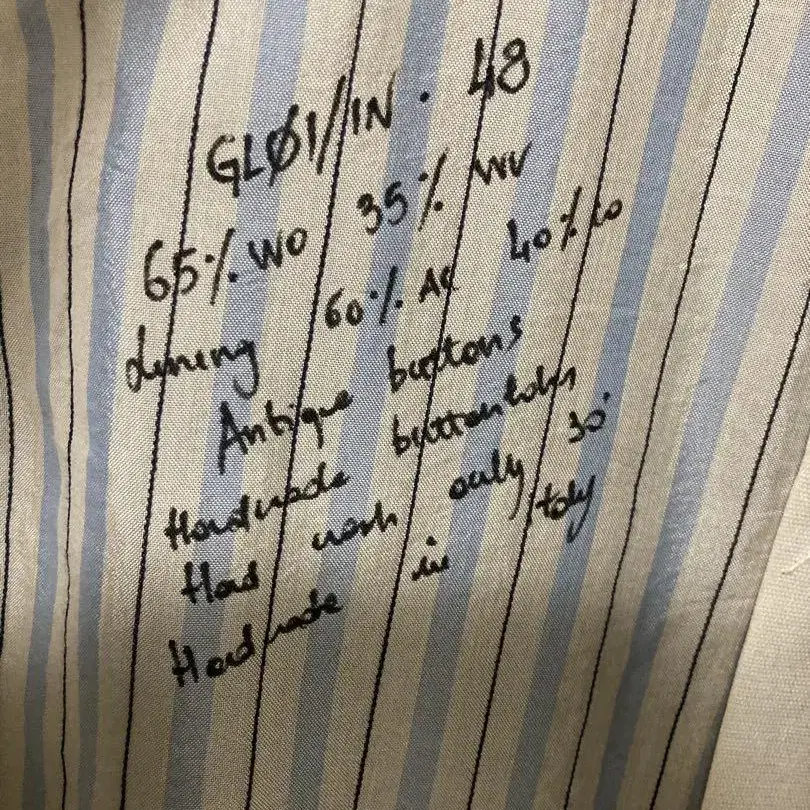 GLØ1/IN · 48
65% WO 35% WV
Lining 60% AC 40% CO
Antique buttons
Handmade buttonholes
Hand wash only 30°
Handmade in Italy